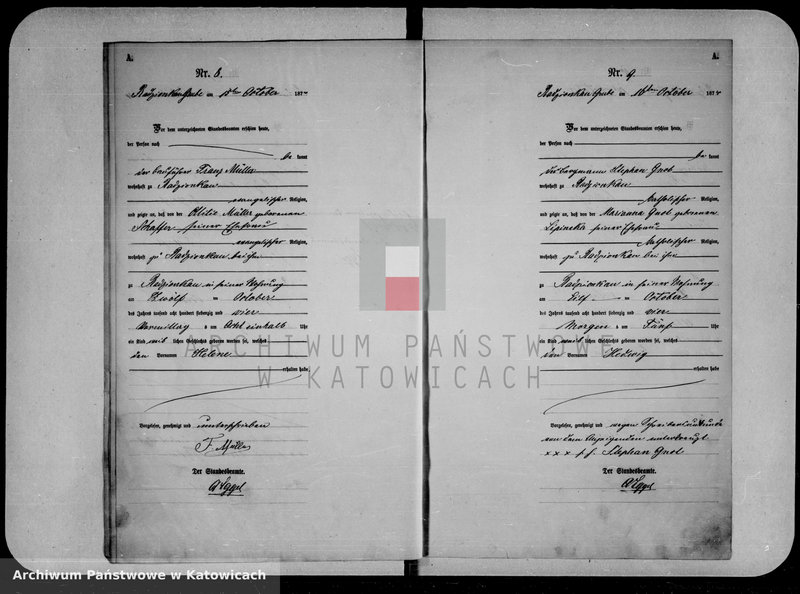 A.
Nr. 8.
Radzionkau Grube am 15ten October 1874
Vor dem unterzeichneten Standesbeamten erschien heute,
der Person nach
be kannt
der Franz Müller
wohnhaft zu Radzionkau
evangelischer Religion,
und zeigte an, daß von der Ottilie Müller geborenen
Schaffer seiner Ehefrau
evangelischer Religion,
wohnhaft zu Radzionkau bei ihm
zu Radzionkau in seiner Wohnung
am Zwölf ten October
des Jahres tausend acht hundert siebenzig und vier
Vormittag s um Acht einhalb Uhr
ein Kind weib lichen Geschlechts geboren worden sei, welches
den Vornamen Helene
erhalten habe
Vorgelesen, genehmigt und unterschrieben
F. Müller
Der Standesbeamte.
A.
Nr. 9.
Radzionkau Grube am 16ten October 1874
Vor dem unterzeichneten Standesbeamten erschien heute,
der Person nach
be kannt
der Bergmann Stephan
wohnhaft zu Radzionkau
katholischer Religion,
und zeigte an, daß von der Marianna geborenen
Lipinski seiner Ehefrau
katholischer Religion,
wohnhaft zu Radzionkau bei ihm
zu Radzionkau in seiner Wohnung
am Elf ten October
des Jahres tausend acht hundert siebenzig und vier
Morgen s um Fünf Uhr
ein Kind weib lichen Geschlechts geboren worden sei, welches
den Vornamen Hedwig
erhalten habe
Vorgelesen, genehmigt und wegen Schreibensunkunde
von dem Anzeigenden unterkreuzt
x x x Stephan
Der Standesbeamte.
ARCHIWUM PAŃSTWOWE
W KATOWICACH
Archiwum Państwowe w Katowicach